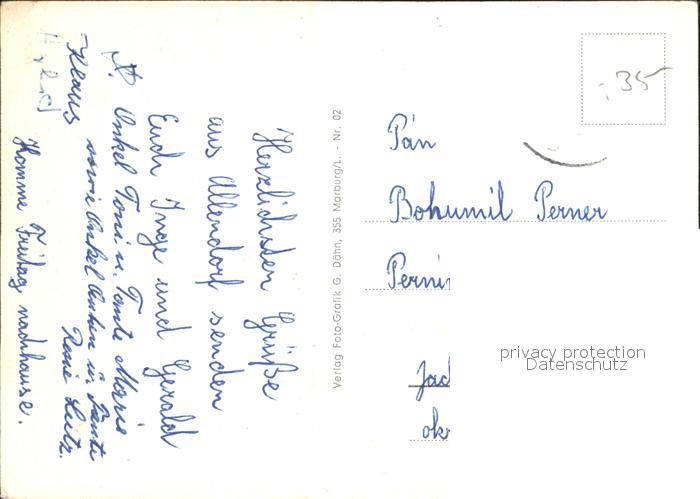 Herzlichsten Grüße
aus Allendorf senden
Euch Inge und Gerald
Onkel Toni u. Tante Marie
sowie Onkel Anton u. Tante
Klaus
Komme Freitag nachhause.
Verlag Foto-Grafik G. Dähn, 355 Marburg/L. - Nr. 02
-35
Pán
Bohumil Perner
Perni
Jad
okr
privacy protection
Datenschutz